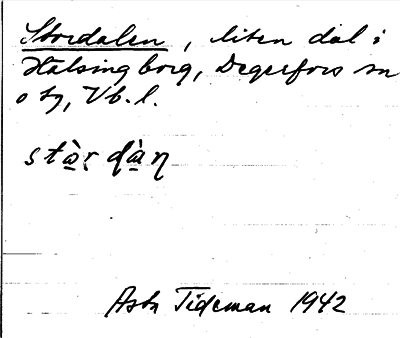 Stordalen, liten dal i
Hälsingborg, Degerfors sn
o tg, Vb. l.
stàr dàn
Astr Tideman 1942